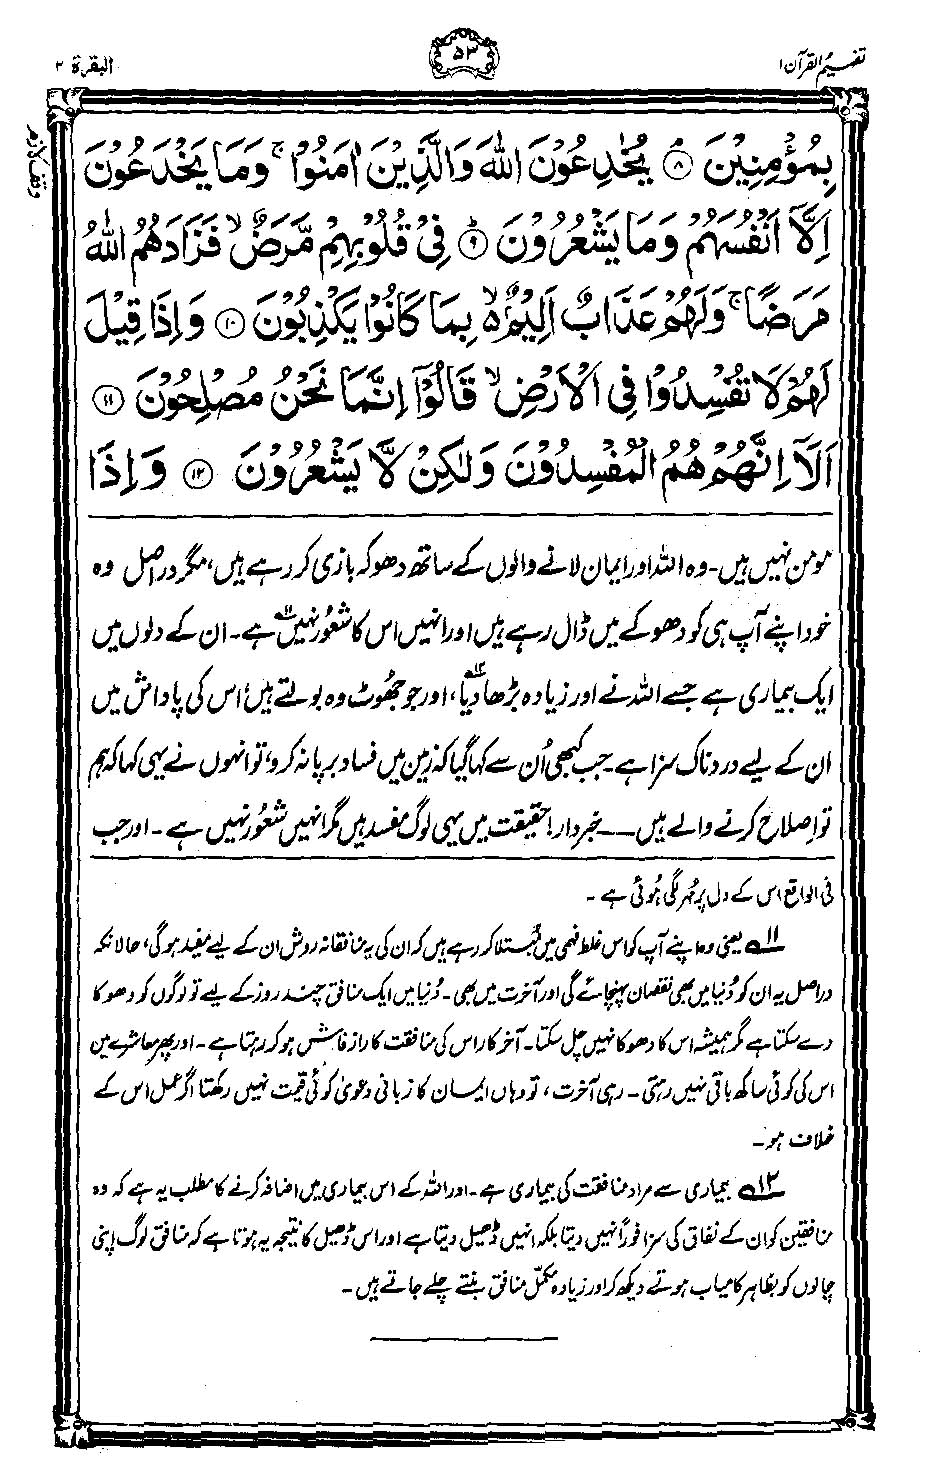 تفہیم القرآن ۱
۵۳
البقرۃ ۲
وقف لازم
بِمُؤْمِنِيْنَ ۘ ۸ يُخٰدِعُوْنَ اللّٰهَ وَالَّذِيْنَ اٰمَنُوْا ۚ وَمَا يَخْدَعُوْنَ
اِلَّاۤ اَنْفُسَهُمْ وَمَا يَشْعُرُوْنَ ؕ ۹ فِيْ قُلُوْبِهِمْ مَّرَضٌ ۙ فَزَادَهُمُ اللّٰهُ
مَرَضًا ۚ وَلَهُمْ عَذَابٌ اَلِيْمٌۢ ۙ بِمَا كَانُوْا يَكْذِبُوْنَ ۱۰ وَاِذَا قِيْلَ
لَهُمْ لَا تُفْسِدُوْا فِي الْاَرْضِ ۙ قَالُوْۤا اِنَّمَا نَحْنُ مُصْلِحُوْنَ ۱۱
اَلَاۤ اِنَّهُمْ هُمُ الْمُفْسِدُوْنَ وَلٰكِنْ لَّا يَشْعُرُوْنَ ۱۲ وَاِذَا
مومن نہیں ہیں۔ وہ اللہ اور ایمان لانے والوں کے ساتھ دھوکہ بازی کر رہے ہیں، مگر دراصل وہ
خود اپنے آپ ہی کو دھوکے میں ڈال رہے ہیں اور انہیں اس کا شعُور نہیں۱۱ ہے۔ ان کے دلوں میں
ایک بیماری ہے جسے اللہ نے اور زیادہ بڑھا دیا۱۲، اور جو جھُوٹ وہ بولتے ہیں، اس کی پاداش میں
ان کے لیے دردناک سزا ہے۔ جب کبھی اُن سے کہا گیا کہ زمین میں فساد برپا نہ کرو، تو انہوں نے یہی کہا کہ ہم
تو اِصلاح کرنے والے ہیں ــــ خبردار! حقیقت میں یہی لوگ مفسد ہیں مگر انہیں شعُور نہیں ہے۔ اور جب
فی الواقع اس کے دل پر مُہر لگی ہُوئی ہے۔
۱۱؎ یعنی وہ اپنے آپ کو اس غلط فہمی میں مُبتلا کر رہے ہیں کہ ان کی یہ منافقانہ روش ان کے لیے مفید ہوگی، حالانکہ
دراصل یہ ان کو دُنیا میں بھی نقصان پہنچائے گی اور آخرت میں بھی۔ دُنیا میں ایک منافق چند روز کے لیے تو لوگوں کو دھوکا
دے سکتا ہے مگر ہمیشہ اس کا دھوکا نہیں چل سکتا۔ آخر کار اس کی منافقت کا راز فاش ہو کر رہتا ہے۔ اور پھر معاشرے میں
اس کی کوئی ساکھ باقی نہیں رہتی۔ رہی آخرت، تو وہاں ایمان کا زبانی دعویٰ کوئی قیمت نہیں رکھتا اگر عمل اس کے
خلاف ہو۔
۱۲؎ بیماری سے مراد منافقت کی بیماری ہے۔ اور اللہ کے اس بیماری میں اضافہ کرنے کا مطلب یہ ہے کہ وہ
منافقین کو ان کے نفاق کی سزا فوراً نہیں دیتا بلکہ انہیں ڈھیل دیتا ہے اور اس ڈھیل کا نتیجہ یہ ہوتا ہے کہ منافق لوگ اپنی
چالوں کو بظاہر کامیاب ہوتے دیکھ کر اور زیادہ مکمّل منافق بنتے چلے جاتے ہیں۔